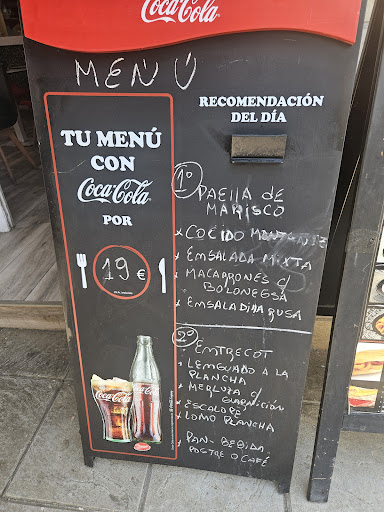 Coca-Cola
MENÚ
RECOMENDACIÓN
DEL DÍA
TU MENÚ
CON
Coca-Cola
POR
19 €
1º
PAELLA de
MARISCO
* COCIDO MONTAÑEZ
* EMSALADA MIXTA
* MACARRONES c/
BOLONEGSA
* EMSALADILLA RUSA
2º
* EMTRECOT
* LEMGUADO A LA
PLANCHA
* MERLUZA c/
GUARNICIÓN
* ESCALOPE
* LOMO PLANCHA
* PAN- BEBIDA
POSTRE O CAFÉ
Coca-Cola
Coca-Cola